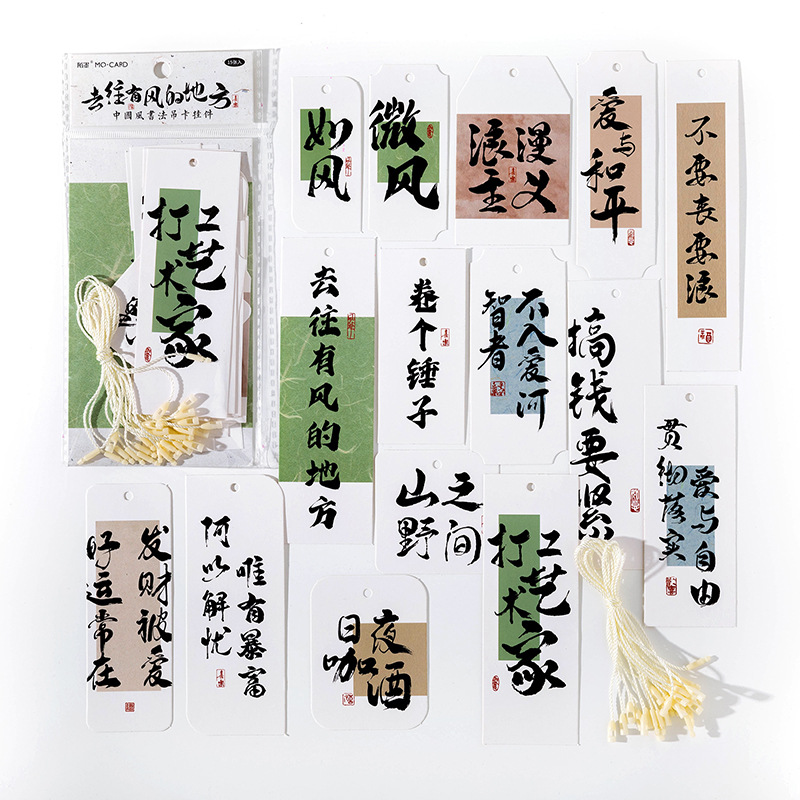 陌墨 MO·CARD
15张入
去往有风的地方
中國風書法吊卡挂件
打工
艺术家
如风
微风
浪漫
主义
爱与和平
不要丧要浪
去往有风的地方
卷个锤子
智者
不入爱河
搞钱要紧
贯彻落实
爱与自由
山野
之间
打工
艺术家
发财被爱
好运常在
何以解忧
唯有暴富
日咖
夜酒